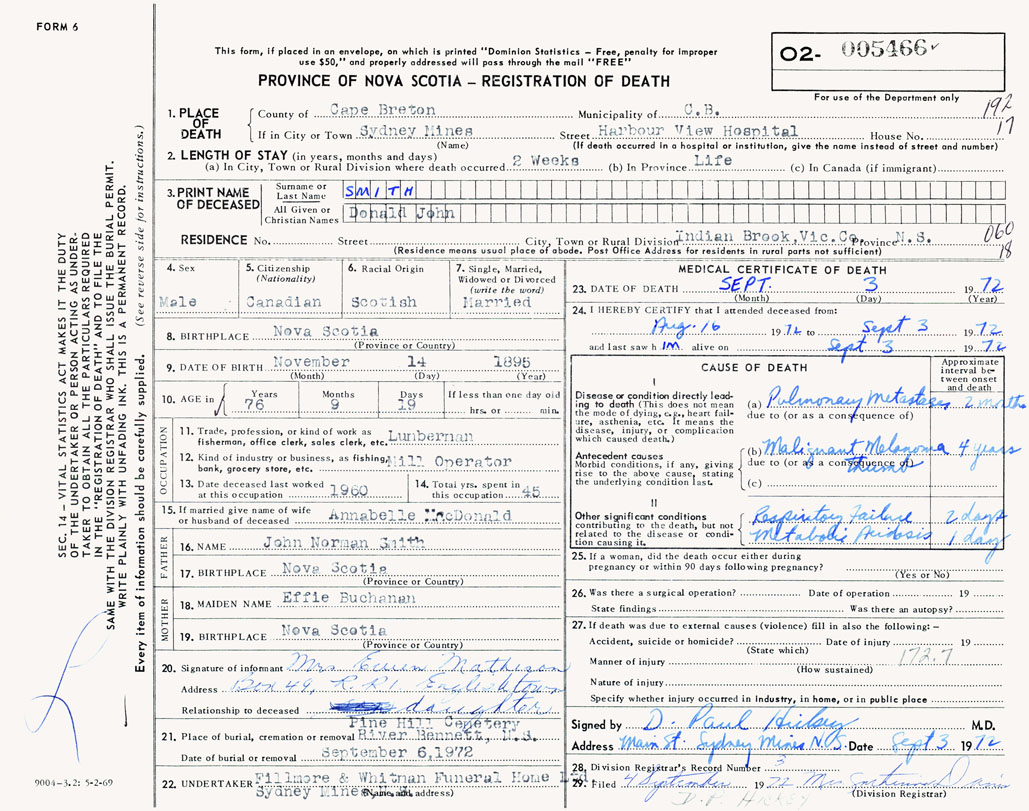 FORM 6
This form, if placed in an envelope, on which is printed "Dominion Statistics – Free, penalty for improper
use $50," and properly addressed will pass through the mail "FREE"
PROVINCE OF NOVA SCOTIA – REGISTRATION OF DEATH
O2- 005466
For use of the Department only
192
17
1. PLACE OF DEATH
County of Cape Breton Municipality of C.B.
If in City or Town Sydney Mines Street Harbour View Hospital House No.
(Name) (If death occurred in a hospital or institution, give the name instead of street and number)
2. LENGTH OF STAY (in years, months and days)
(a) In City, Town or Rural Division where death occurred 2 Weeks (b) In Province Life (c) In Canada (if immigrant)
3. PRINT NAME OF DECEASED
Surname or Last Name SMITH
All Given or Christian Names Donald John
RESIDENCE No. Street City, Town or Rural Division Indian Brook,Vic.Co. Province N.S.
(Residence means usual place of abode. Post Office Address for residents in rural parts not sufficient)
060
18
4. Sex
Male
5. Citizenship
(Nationality)
Canadian
6. Racial Origin
Scotish
7. Single, Married,
Widowed or Divorced
(write the word)
Married
8. BIRTHPLACE Nova Scotia
(Province or Country)
9. DATE OF BIRTH November 14 1895
(Month) (Day) (Year)
10. AGE in
Years Months Days If less than one day old
76 9 19 hrs. or min.
OCCUPATION
11. Trade, profession, or kind of work as
fisherman, office clerk, sales clerk, etc. Lumberman
12. Kind of industry or business, as fishing,
bank, grocery store, etc. Mill Operator
13. Date deceased last worked
at this occupation 1960
14. Total yrs. spent in
this occupation 45
15. If married give name of wife
or husband of deceased Annabelle MacDonald
FATHER
16. NAME John Norman Smith
17. BIRTHPLACE Nova Scotia
(Province or Country)
MOTHER
18. MAIDEN NAME Effie Buchanan
19. BIRTHPLACE Nova Scotia
(Province or Country)
20. Signature of informant Mrs Ewen Matheson
Address Box 49, R.R1. Englishtown
Relationship to deceased daughter
Pine Hill Cemetery
21. Place of burial, cremation or removal River Bennett, N.S.
Date of burial or removal September 6,1972
22. UNDERTAKER Fillmore & Whitman Funeral Home Ltd.
Sydney Mines, N.S.
(Name and address)
MEDICAL CERTIFICATE OF DEATH
23. DATE OF DEATH SEPT. 3 19 72
(Month) (Day) (Year)
24. I HEREBY CERTIFY that I attended deceased from:
Aug. 16 19 72 to Sept 3 19 72
and last saw h IM. alive on Sept 3 19 72
CAUSE OF DEATH
Approximate interval between onset and death
I
Disease or condition directly leading
to death (This does not mean
the mode of dying, e.g., heart failure,
asthenia, etc. It means the
disease, injury, or complication
which caused death.)
(a) Pulmonary Metastases 2 months
due to (or as a consequence of)
Antecedent causes
Morbid conditions, if any, giving
rise to the above cause, stating
the underlying condition last.
(b) Malignant Melanoma 4 years
due to (or as a consequence of) thumb
(c)
II
Other significant conditions
contributing to the death, but not
related to the disease or condition
causing it.
Respiratory Failure 2 days
Metabolic Acidosis 1 day
25. If a woman, did the death occur either during
pregnancy or within 90 days following pregnancy?
(Yes or No)
26. Was there a surgical operation? Date of operation 19
State findings Was there an autopsy?
27. If death was due to external causes (violence) fill in also the following: –
Accident, suicide or homicide? Date of injury 19
(State which)
Manner of injury 172.7
(How sustained)
Nature of injury
Specify whether injury occurred in industry, in home, or in public place
Signed by D. Paul Hickey M.D.
Address Main St. Sydney Mines N.S. Date Sept 3 19 72
28. Division Registrar's Record Number 3
29. Filed 4 September 19 72 Mrs
(Division Registrar)
D.P. HICKEY
SEC. 14 – VITAL STATISTICS ACT MAKES IT THE DUTY
OF THE UNDERTAKER OR PERSON ACTING AS UNDERTAKER
TO OBTAIN ALL THE PARTICULARS REQUIRED
IN THE "REGISTRATION OF DEATH" AND TO FILE THE
SAME WITH THE DIVISION REGISTRAR WHO SHALL ISSUE THE BURIAL PERMIT.
WRITE PLAINLY WITH UNFADING INK. THIS IS A PERMANENT RECORD.
Every item of information should be carefully supplied. (See reverse side for instructions.)
9004-3.2: 5-2-69